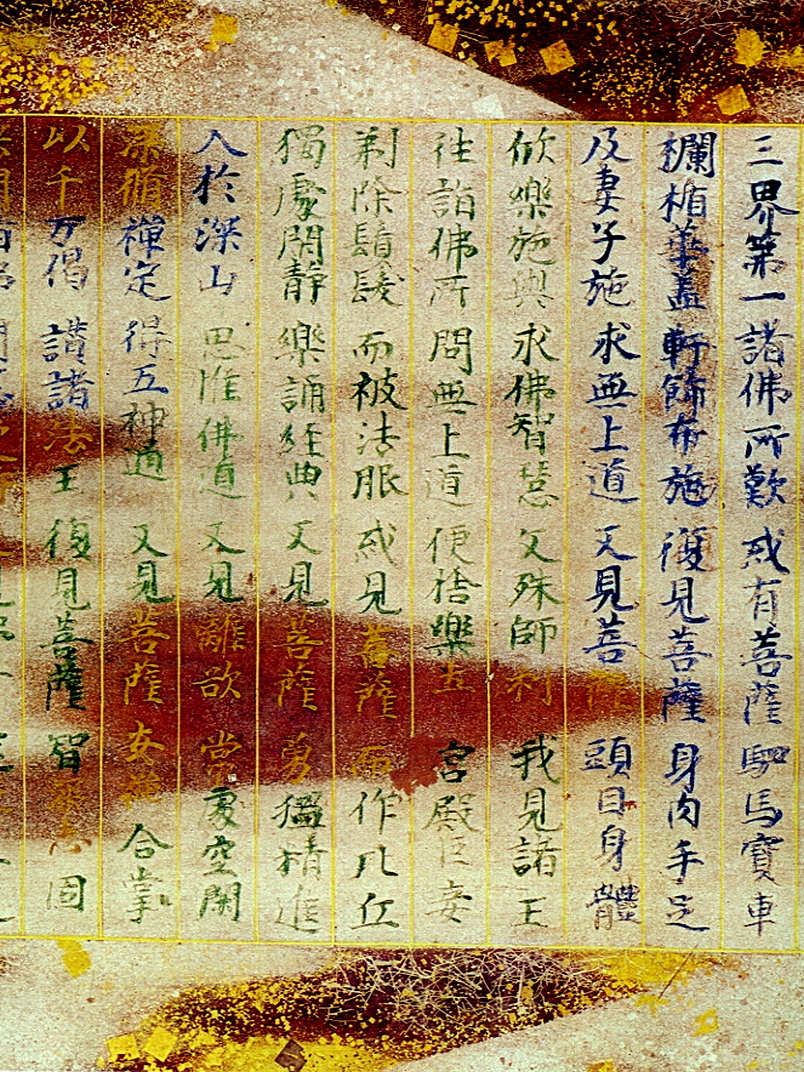 三界第一 諸佛所歎 或有菩薩 駟馬寶車
欄楯華蓋 軒飾布施 復見菩薩 身肉手足
及妻子施 求無上道 又見菩薩 頭目身體
欣樂施與 求佛智慧 文殊師利 我見諸王
往詣佛所 問無上道 便捨樂土 宮殿臣妾
剃除鬚髮 而被法服 或見菩薩 而作比丘
獨處閑靜 樂誦經典 又見菩薩 勇猛精進
入於深山 思惟佛道 又見離欲 常處空閑
深脩禪定 得五神通 又見菩薩 安禪合掌
以千万偈 讚諸法王 復見菩薩 智深志固